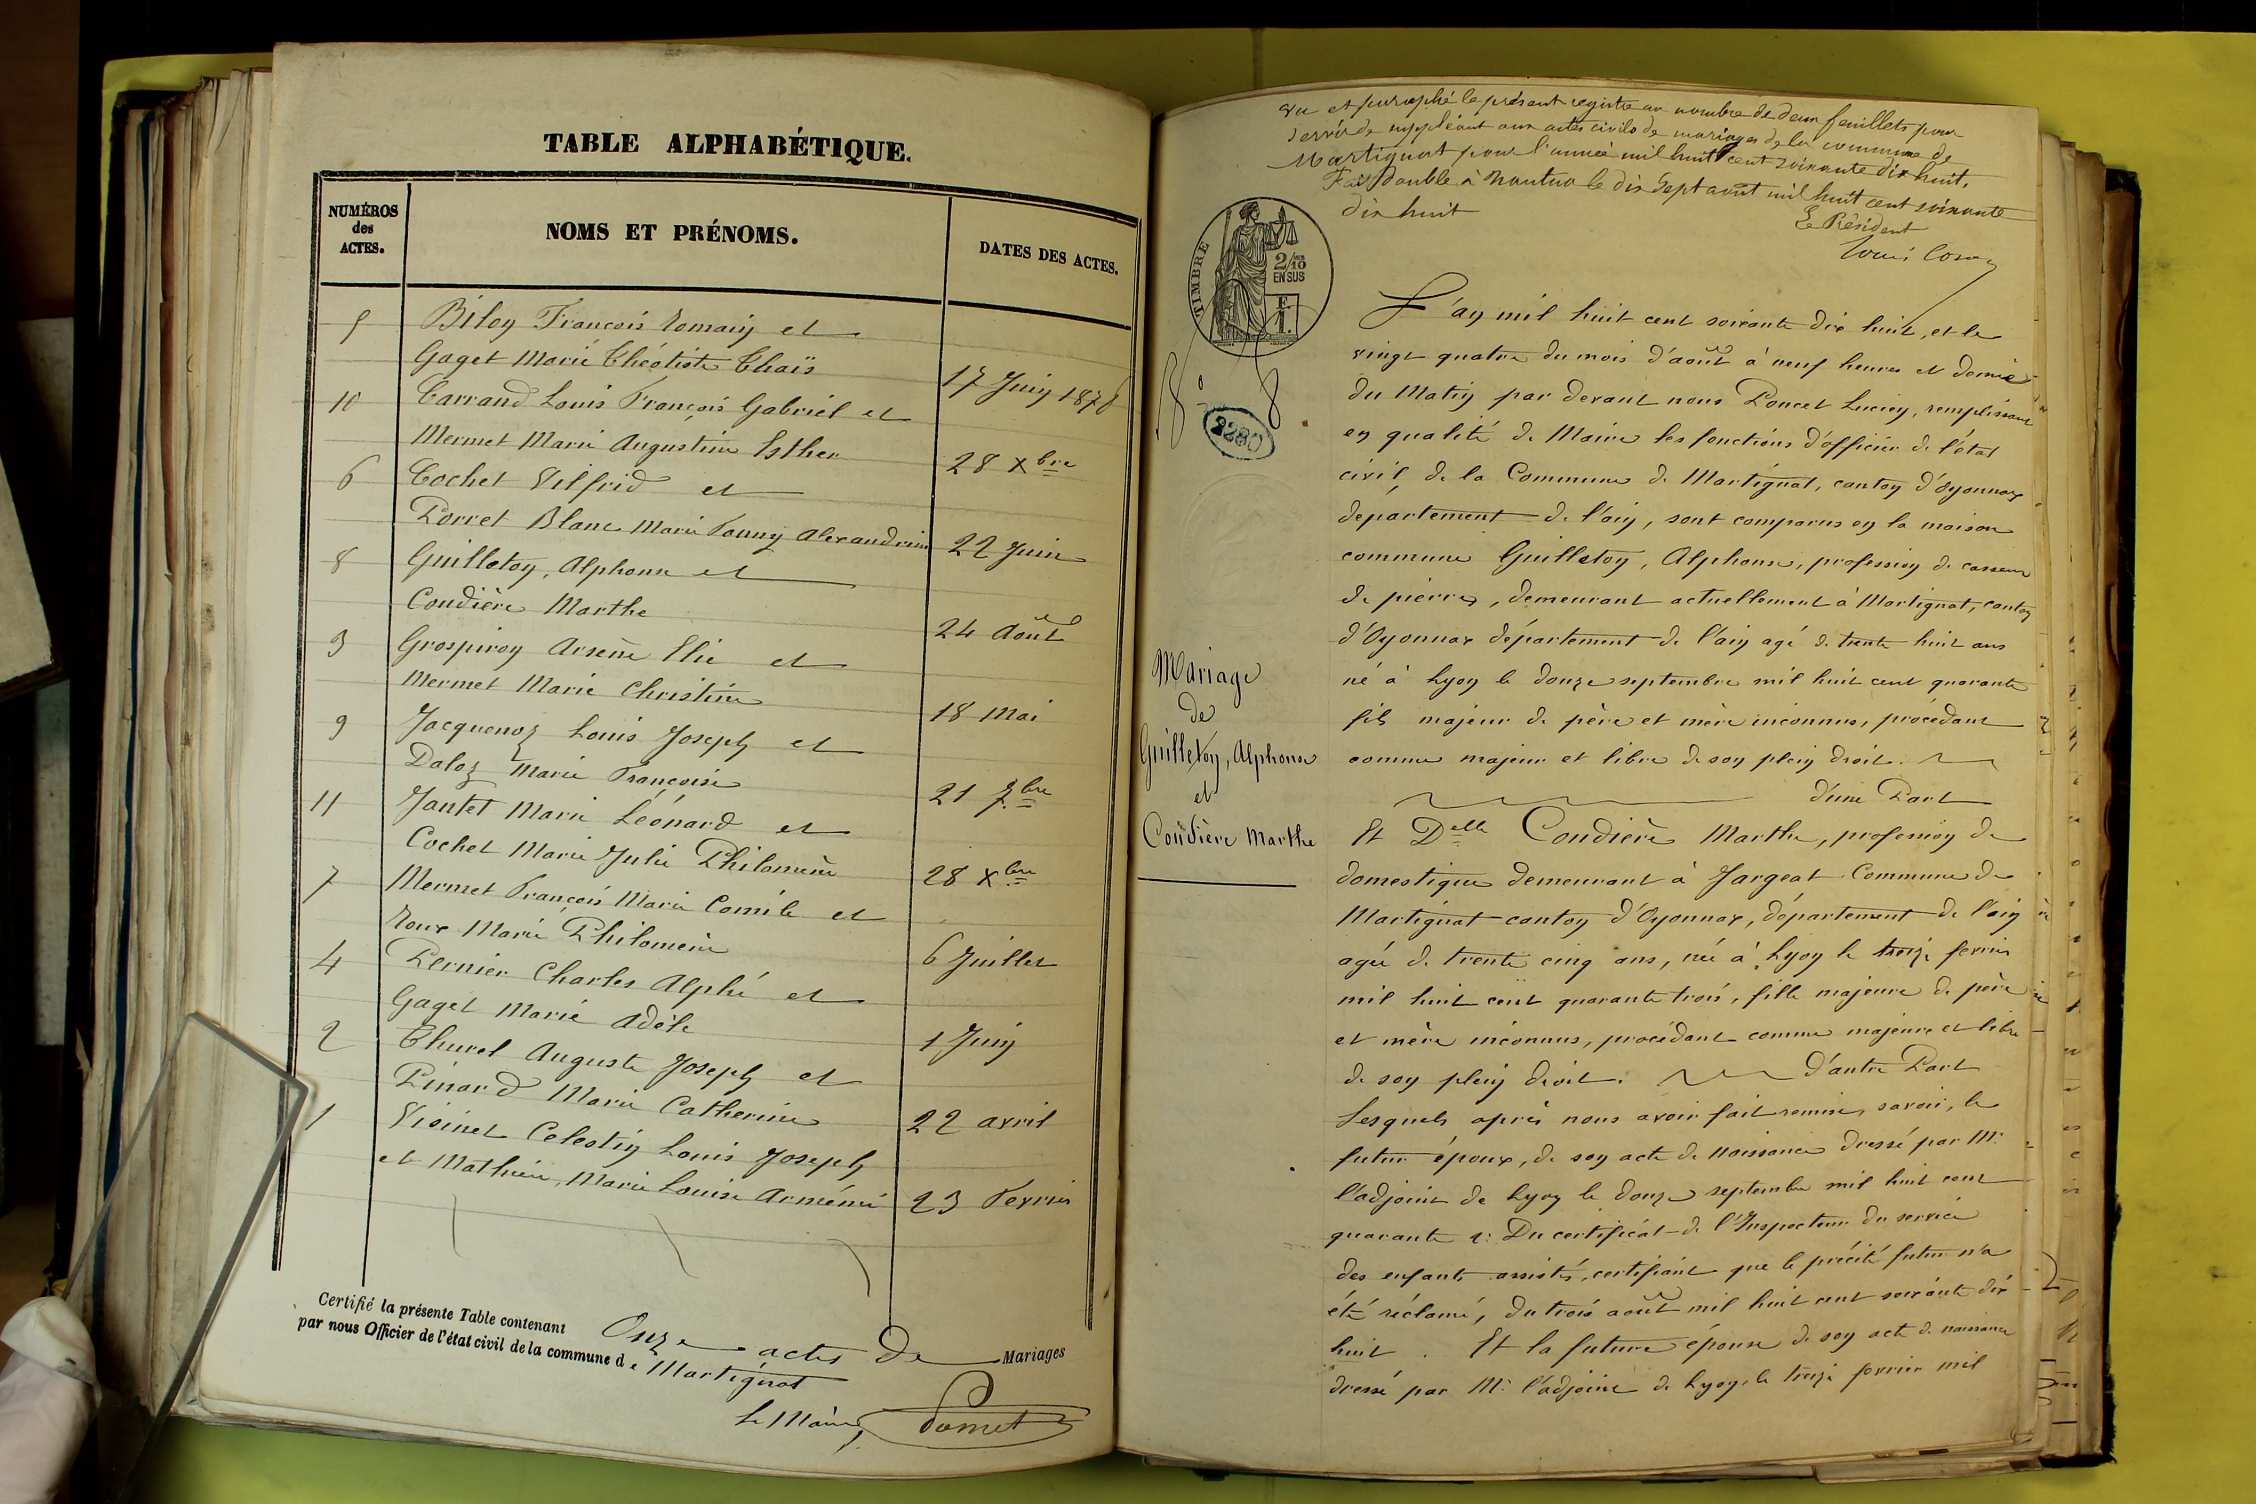 TABLE ALPHABÉTIQUE.
NUMÉROS
des
ACTES.
NOMS ET PRÉNOMS.
DATES DES ACTES.
5 Biloy François Romain et
Gaget Marie Théotiste Thaïs 17 Juin 1878
10 Carrand Louis François Gabriel et
Mermet Marie Augustine Esther 28 Xbre
6 Cochet Vilfrid et
Porret Blanc Marie Fanny Alexandrine 22 Juin
8 Guilleton, Alphonse et
Coudière Marthe 24 Août
3 Grospiron Arsène Elie et
Mermet Marie Christine 18 Mai
9 Jacquenoz Louis Joseph et
Daloz Marie Françoise 21 7bre
11 Jantet Marie Léonard et
Cochet Marie Julie Philomène 28 Xbre
7 Mermet François Marie Comile et
Roux Marie Philomène 6 Juillet
4 Pernier Charles Alphé et
Gaget Marie Adèle 1 Juin
2 Thurel Auguste Joseph et
Pinard Marie Catherine 22 avril
1 Visinet Celestin Louis Joseph
et Mathieu, Marie Louise Arménie 23 Fevrier
Certifié la présente Table contenant Onze actes de Mariages
par nous Officier de l'état civil de la commune de Martignat
Le Maire,
Vu et paraphé le présent registre au nombre de deux feuillets pour
servir de suppléant aux actes civils de mariages de la commune de
Martignat pour l'année mil huit cent soixante dix huit.
Fait double à Nantua le dix sept août mil huit cent soixante
dix huit
Le Président
TIMBRE
2/10
EN SUS
F.
1.
2280
L'an mil huit cent soixante dix huit, et le
vingt quatre du mois d'août à neuf heures et demie
du Matin par devant nous Poncet Lucien, remplissant
en qualité de Maire les fonctions d'officier de l'état
civil, de la Commune de Martignat, canton d'Oyonnax
departement de l'ain, sont comparus en la maison
commune Guilleton, Alphonse, profession de casseur
de pierres, demeurant actuellement à Martignat, canton
d'Oyonnax département de l'ain agé de trente huit ans
né à Lyon le douze septembre mil huit cent quarante
fils majeur de père et mère inconnus, procédant
comme majeur et libre de son plein droit.
d'une Part
Mariage
de
Guilleton, Alphonse
et
Coudière Marthe
Et Delle Coudière Marthe, profession de
domestique demeurant à Jargeat Commune de
Martignat canton d'Oyonnax, département de l'ain
agée de trente cinq ans, née à Lyon le treize fevrier
mil huit cent quarante trois, fille majeure de père
et mère inconnus, procédant comme majeure et libre
de son plein droit. d'autre Part
Lesquels après nous avoir fait remise, savoir, le
futur époux, de son acte de naissance dressé par Mr
l'adjoint de Lyon le douze septembre mil huit cent
quarante 2: Du certificat de l'Inspecteur du service
des enfants assistés, certifiant que le précité futur n'a
été réclamé, du trois août mil huit cent soixante dix
huit. Et la future épouse de son acte de naissance
dressé par Mr l'adjoint de Lyon, le treize fevrier mil